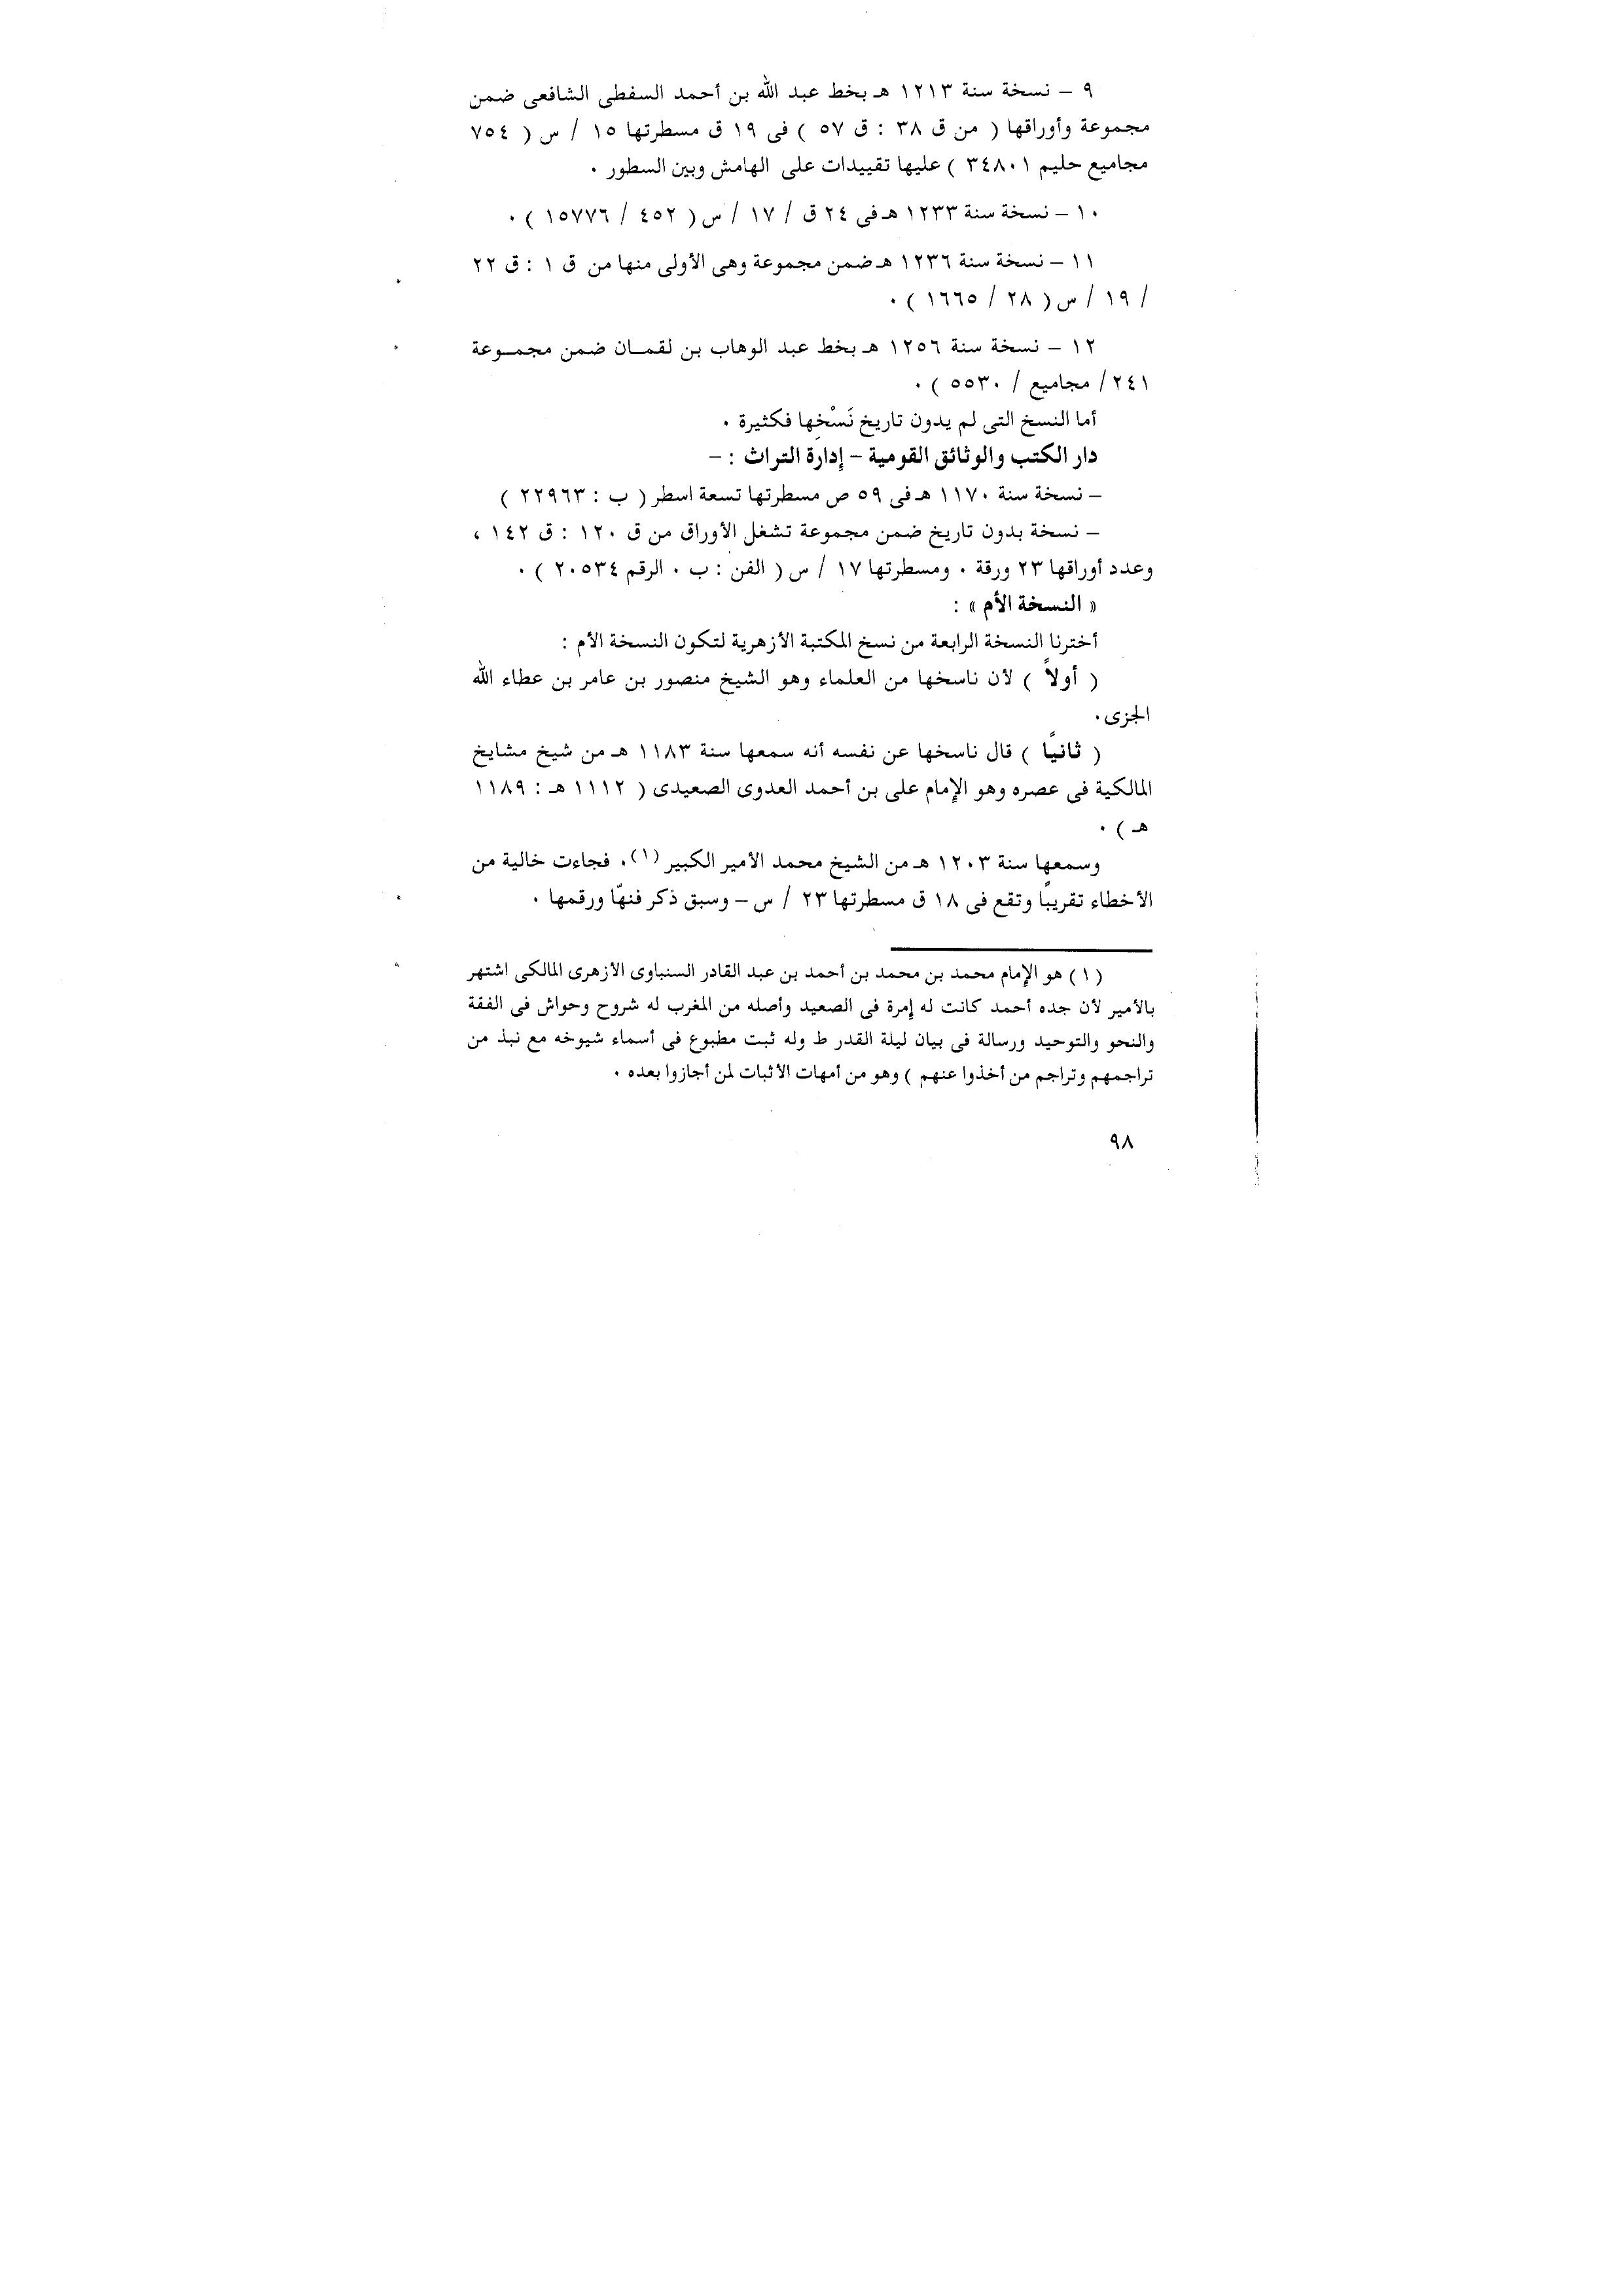 ٩ – نسخة سنة ١٢١٣ هـ بخط عبد الله بن أحمد السفطى الشافعى ضمن
مجموعة وأوراقها ( من ق ٣٨ : ق ٥٧ ) فى ١٩ ق مسطرتها ١٥ / س ( ٧٥٤
مجاميع حليم ٣٤٨٠١ ) عليها تقييدات على الهامش وبين السطور ٠
١٠ – نسخة سنة ١٢٣٣ هـ فى ٢٤ ق / ١٧ / س ( ٤٥٢ / ١٥٧٧٦ ) ٠
١١ – نسخة سنة ١٢٣٦ هـ ضمن مجموعة وهى الأولى منها من ق ١ : ق ٢٢
/ ١٩ / س ( ٢٨ / ١٦٦٥ ) ٠
١٢ – نسخة سنة ١٢٥٦ هـ بخط عبد الوهاب بن لقمــان ضمن مجمــوعة
٢٤١/ مجاميع / ٥٥٣٠ ) ٠
أما النسخ التى لم يدون تاريخ نَسْخِها فكثيرة ٠
دار الكتب والوثائق القومية – إدارة التراث : –
– نسخة سنة ١١٧٠ هـ فى ٥٩ ص مسطرتها تسعة اسطر ( ب : ٢٢٩٦٣ )
– نسخة بدون تاريخ ضمن مجموعة تشغل الأوراق من ق ١٢٠ : ق ١٤٢ ،
وعدد أوراقها ٢٣ ورقة ٠ ومسطرتها ١٧ / س ( الفن : ب ٠ الرقم ٢٠٥٣٤ ) ٠
« النسخة الأم » :
أخترنا النسخة الرابعة من نسخ المكتبة الأزهرية لتكون النسخة الأم :
( أولاً ) لأن ناسخها من العلماء وهو الشيخ منصور بن عامر بن عطاء الله
الجزى٠
( ثانيًا ) قال ناسخها عن نفسه أنه سمعها سنة ١١٨٣ هـ من شيخ مشايخ
المالكية فى عصره وهو الإمام على بن أحمد العدوى الصعيدى ( ١١١٢ هـ : ١١٨٩
هـ ) ٠
وسمعها سنة ١٢٠٣ هـ من الشيخ محمد الأمير الكبير (١)٠ فجاءت خالية من
الأخطاء تقريبًا وتقع فى ١٨ ق مسطرتها ٢٣ / س – وسبق ذكر فنهّا ورقمها ٠
(١) هو الإمام محمد بن محمد بن أحمد بن عبد القادر السنباوى الأزهرى المالكى اشتهر
بالأمير لأن جده أحمد كانت له إمرة فى الصعيد وأصله من المغرب له شروح وحواش فى الفقة
والنحو والتوحيد ورسالة فى بيان ليلة القدر ط وله ثبت مطبوع فى أسماء شيوخه مع نبذ من
تراجمهم وتراجم من أخذوا عنهم ) وهو من أمهات الأثبات لمن أجازوا بعده ٠
٩٨